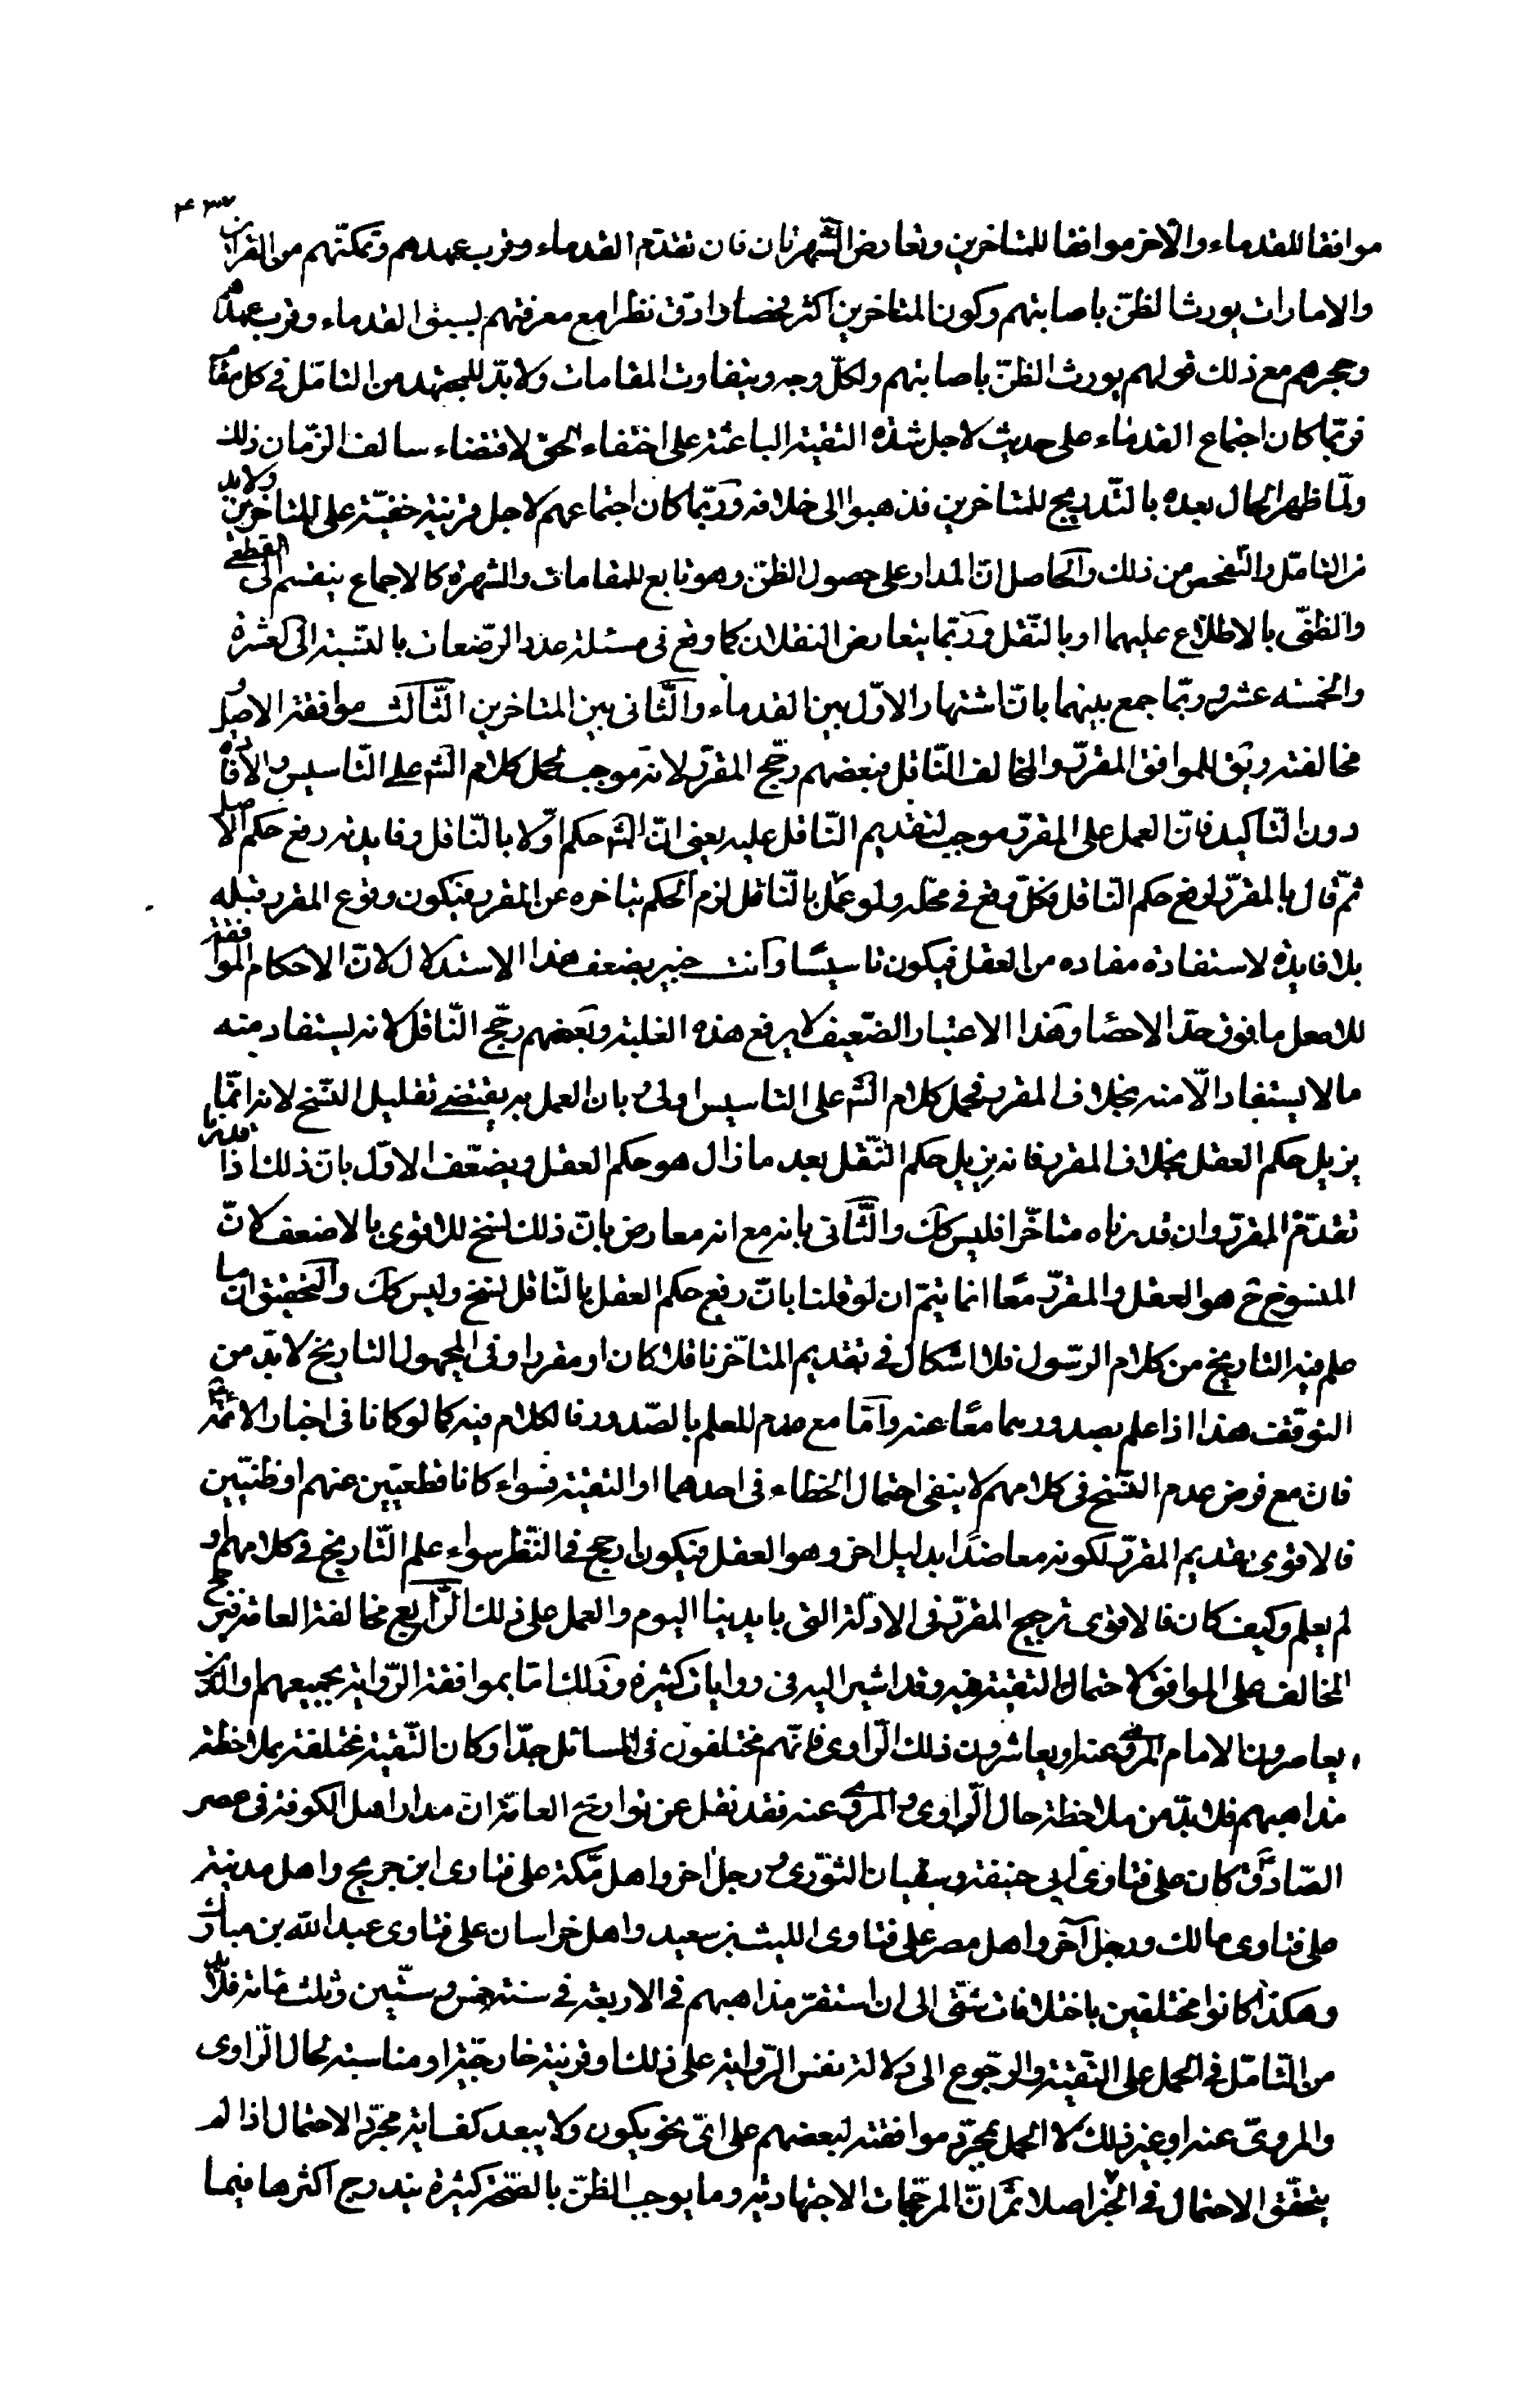 ۴۳۷
موافقا للقدماء والآخر موافقا للمتاخرين وتعارض الشهرتان فان تقدم القدماء وقرب عهدهم وتمكنهم من القراين
والامارات يورث الظنّ باصابتهم وكون المتاخرين اكثر فحصا وادقّ نظرا مع معرفتهم بسبق القدماء وقرب عهدهم
وهجرهم مع ذلك قولهم يورث الظنّ باصابتهم ولكلّ وجه ويتفاوت المقامات ولا بدّ للمجتهد من التامّل في كل مقام
فربّما كان اجتماع القدماء على حديث لاجل شدة التقية الباعثة على اختفاء الحق لاقتضاء سالف الزمان ذلك
ولمّا ظهر الحال بعده بالتّدريج للمتاخرين فذهبوا الى خلافه وربّما كان اجتماعهم لاجل قرينة خفيّة على المتاخرين ولا بد
من التامّل والتّفحص من ذلك والحاصل انّ المدار على حصول الظنّ وهو تابع للمقامات والشهرة كالاجماع ينقسم الى القطعي
والظنّى بالاطلاع عليهما او بالنّقل وربّما يتعارض النقلان كما وقع فى مسئلة عدد الرّضعات بالنّسبة الى العشرة
والخمسه عشر وربّما جمع بينهما بانّ اشتهار الاوّل بين القدماء والثّانى بين المتاخرين الثّالث موافقة الاصل و
مخالفته ويق للموافق المقرّر والمخالف النّاقل فبعضهم رجّح المقرّر لانه موجب لحمل كلام الشّ على التّاسيس والافادة
دون التّاكيد فانّ العمل على المقرّر موجب لتقديم النّاقل عليه يعنى انّ الشّ حكم اوّلا بالنّاقل وفايدته رفع حكم الاصل
ثمّ قال بالمقرّر لرفع حكم النّاقل فكلّ وقع في محلّه ولو عمل بالنّاقل لزم الحكم بتاخره عن المقرر فيكون وقوع المقرر قبله
بلا فايدة لاستفادة مفاده من العقل فيكون تاسيسًا وانت خبير بضعف هذا الاستدلال لانّ الاحكام الموافقة
للاصل ما فوق حدّ الاحصاء وهذا الاعتبار الضّعيف لا يرفع هذه الغلبة وبعضهم رجّح النّاقل لانه يستفاد منه
ما لا يستفاد الّا منه بخلاف المقرر فحمل كلام الشّ على التاسيس اولى وبان العمل به يقتضى تقليل النّسخ لانه انّما
يزيل حكم العقل بخلاف المقرر فانه يزيل حكم النّقل بعد ما زال هو حكم العقل ويضعّف الاوّل بانّ ذلك اذا قلنا
تقدّم المقرّر وان قدرناه متاخّرا فليس كك والثّانى بانه مع انه معارض بانّ ذلك نسخ للاقوى بالاضعف لانّ
المنسوخ ح هو العقل والمقرّر معًا انما يتمّ ان لو قلنا بانّ رفع حكم العقل بالنّاقل نسخ وليس كك والتّحقيق ان ما
علم فيه التاريخ من كلام الرّسول فلا اشكال فى تقديم المتاخّر ناقلا كان او مقررا وفى المجهول التاريخ لا بدّ من
التوقّف هذا اذا علم بصدورهما معًا عنه وامّا مع عدم العلم بالصّدور فالكلام فيه كما لو كانا فى اخبار الائمّة
فان مع فرض عدم النّسخ فى كلامهم لا ينفى احتمال الخطاء فى احدهما او التقية فسواء كانا قطعيّين عنهم او ظنيّين
فالاقوى تقديم المقرّر لكونه معاضدًا بدليل اخر وهو العقل فيكون ارجح فى النّظر سواء علم التّاريخ في كلامهم او
لم يعلم وكيف كان فالاقوى ترجيح المقرّر فى الادلّة التى بايدينا اليوم والعمل على ذلك الرّابع مخالفة العامة فيرجّح
المخالف على الموافق لاحتمال التقية فيه وقد اشير اليه فى روايات كثيرة وذلك امّا بموافقة الرّواية بجميعهم او الذين
يعاصرون الامام المروى عنه او يعاشرون ذلك الرّاوى فانّهم مختلفون فى المسائل جدّا وكان التّقية مختلفة بملاحظة
مذاهبهم فلا بدّ من ملاحظة حال الرّاوى والمروى عنه فقد نقل عن تواريخ العامّة ان مدار اهل الكوفة فى عصر
الصّادق كان على فتاوى ابى حنيفة وسفيان الثّورى ورجل اخر واهل مكّة على فتاوى ابن جريج واهل مدينة
على فتاوى مالك ورجل آخر واهل مصر على فتاوى الليث بن سعيد واهل خراسان على فتاوى عبد الله بن مبارك
وهكذا كانوا مختلفين باختلافات شتّى الى ان استقرّ مذاهبهم فى الاربعة فى سنة خمس وستّين وثلث مائة فلا بد
من التّامّل فى الحمل على التّقيّة والرجوع الى دلالة نفس الرّواية على ذلك او قرينة خارجيّة او مناسبة لحال الرّاوى
والمروىّ عنه او غير ذلك لا الحمل بمجرّد موافقته لبعضهم على اىّ نحو يكون ولا يبعد كفاية مجرّد الاحتمال اذا لم
يتحقّق الاحتمال فى الخبر اصلا ثمّ انّ المرجّحات الاجتهادية وما يوجب الظنّ بالصّحّة كثيرة يندرج اكثرها فيما